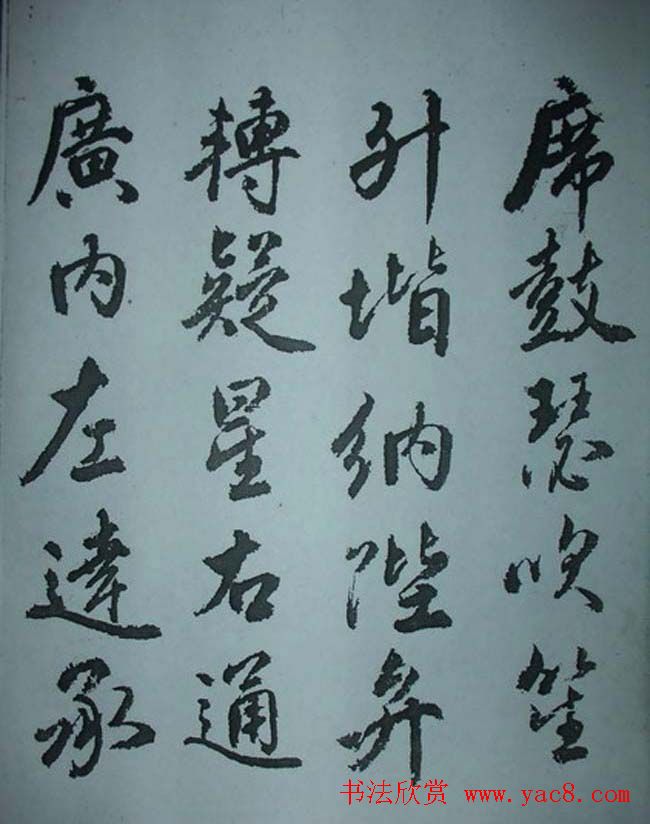 席鼓瑟吹笙
升堦納陛弁
轉疑星右通
廣内左達承
书法欣赏 www.yac8.com